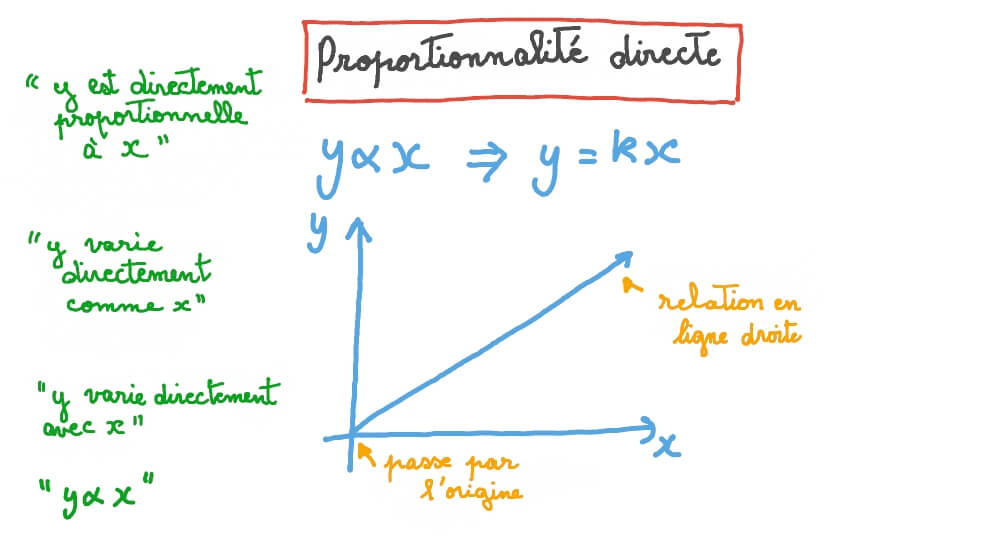 Proportionnalité directe
" y est directement
proportionnelle
à x "
y ∝ x ⇒ y = kx
" y varie
directement
comme x "
" y varie directement
avec x "
" y ∝ x "
y
relation en
ligne droite
x
passe par
l'origine